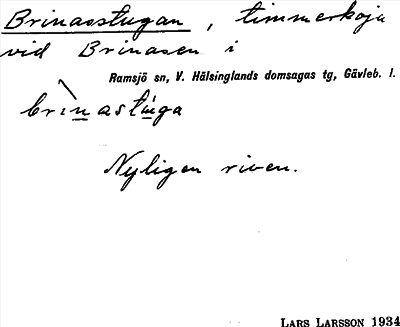 Brinasstugan, timmerkoja
vid Brinasen i
Ramsjö sn, V. Hälsinglands domsagas tg, Gävleb. l.
brinastuga
Nyligen riven.
LARS LARSSON 1934